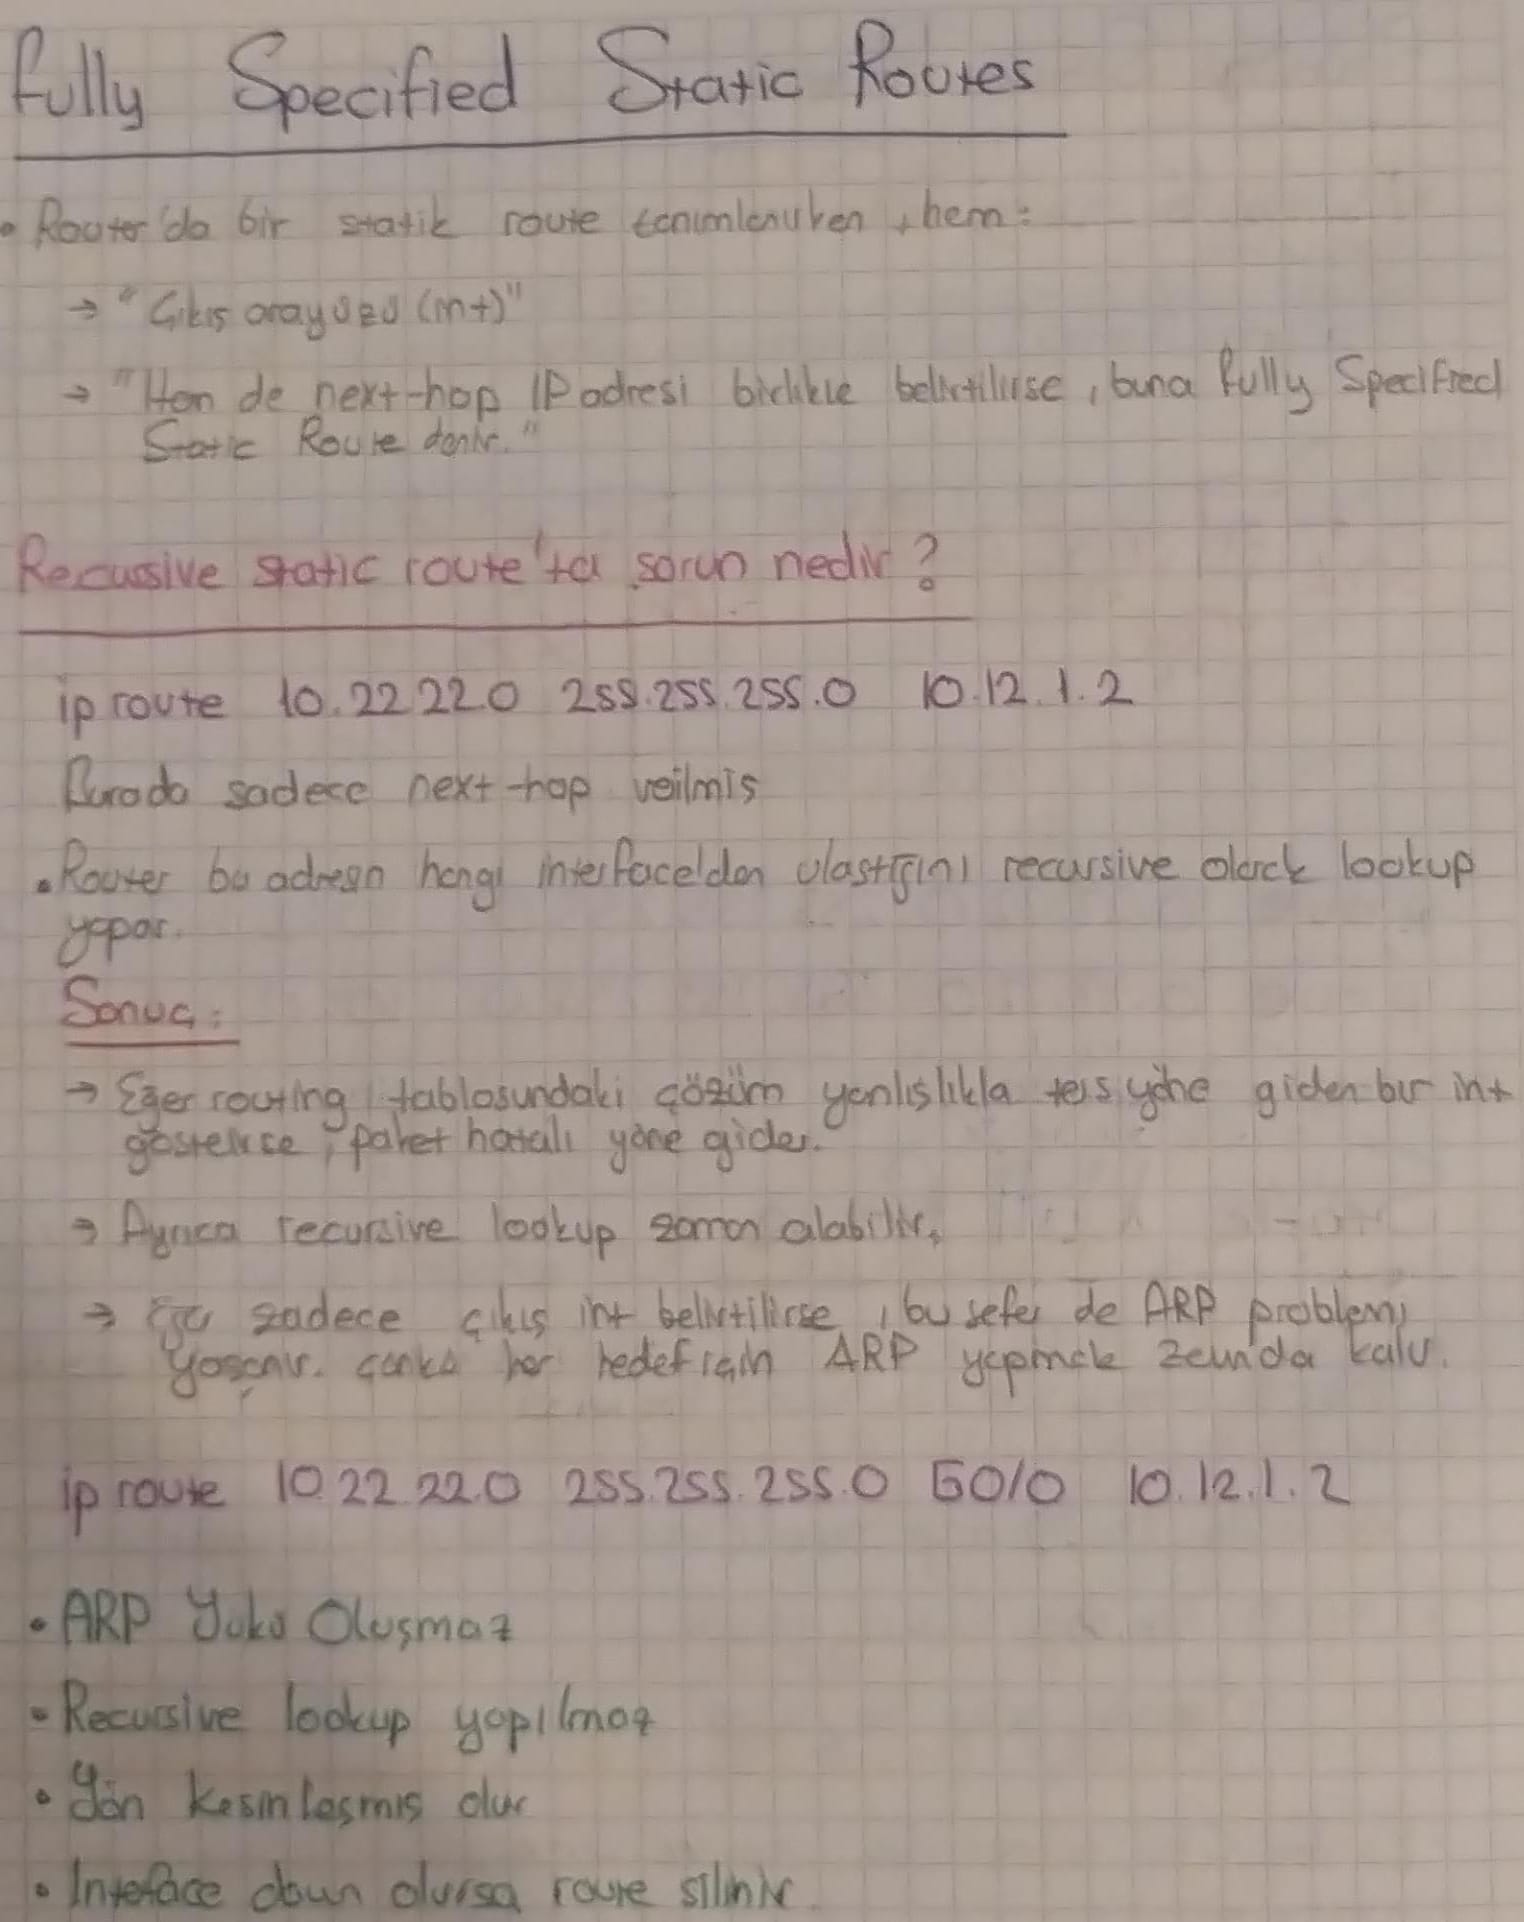 Fully Specified Static Routes
• Router'da bir statik route tanımlanırken, hem:
→ "Çıkış arayüzü (int)"
→ "Hem de next-hop IP adresi birlikte belirtilirse, buna Fully Specified
Static Route denir."
Recursive static route'ta sorun nedir?
ip route 10.22.22.0 255.255.255.0 10.12.1.2
Burada sadece next-hop verilmiş
• Router bu adresin hangi interface'den ulaştığını recursive olarak lookup
yapar.
Sonuç:
→ Eğer routing tablosundaki çözüm yanlışlıkla ters yöne giden bir int
gösterirse, paket hatalı yöne gider.
→ Ayrıca recursive lookup zaman alabilir.
→ Eğer sadece çıkış int belirtilirse, bu sefer de ARP problemi
yaşanır. çünkü her hedef için ARP yapmak zorunda kalır.
ip route 10.22.22.0 255.255.255.0 G0/0 10.12.1.2
• ARP Yükü Oluşmaz
• Recursive lookup yapılmaz
• Yön kesinleşmiş olur
• Interface down olursa route silinir.